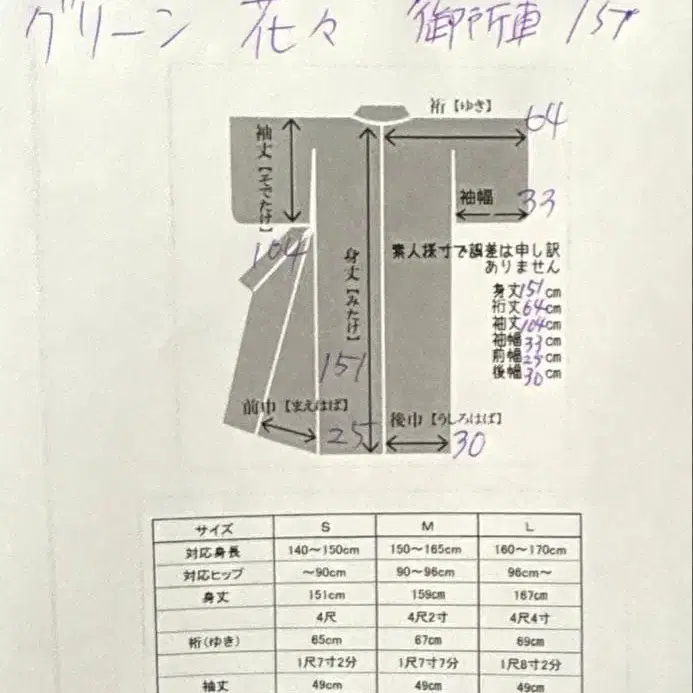 グリーン 花々 御所車 151
裄【ゆき】
64
袖丈【そでたけ】
104
袖幅
33
身丈【みたけ】
151
素人採寸で誤差は申し訳
ありません
身丈151cm
裄丈64cm
袖丈104cm
袖幅33cm
前幅25cm
後幅30cm
前巾【まえはば】
25
後巾【うしろはば】
30
サイズ S M L
対応身長 140〜150cm 150〜165cm 160〜170cm
対応ヒップ 〜90cm 90〜96cm 96cm〜
身丈 151cm 159cm 167cm
4尺 4尺2寸 4尺4寸
裄(ゆき) 65cm 67cm 69cm
1尺7寸2分 1尺7寸7分 1尺8寸2分
袖丈 49cm 49cm 49cm